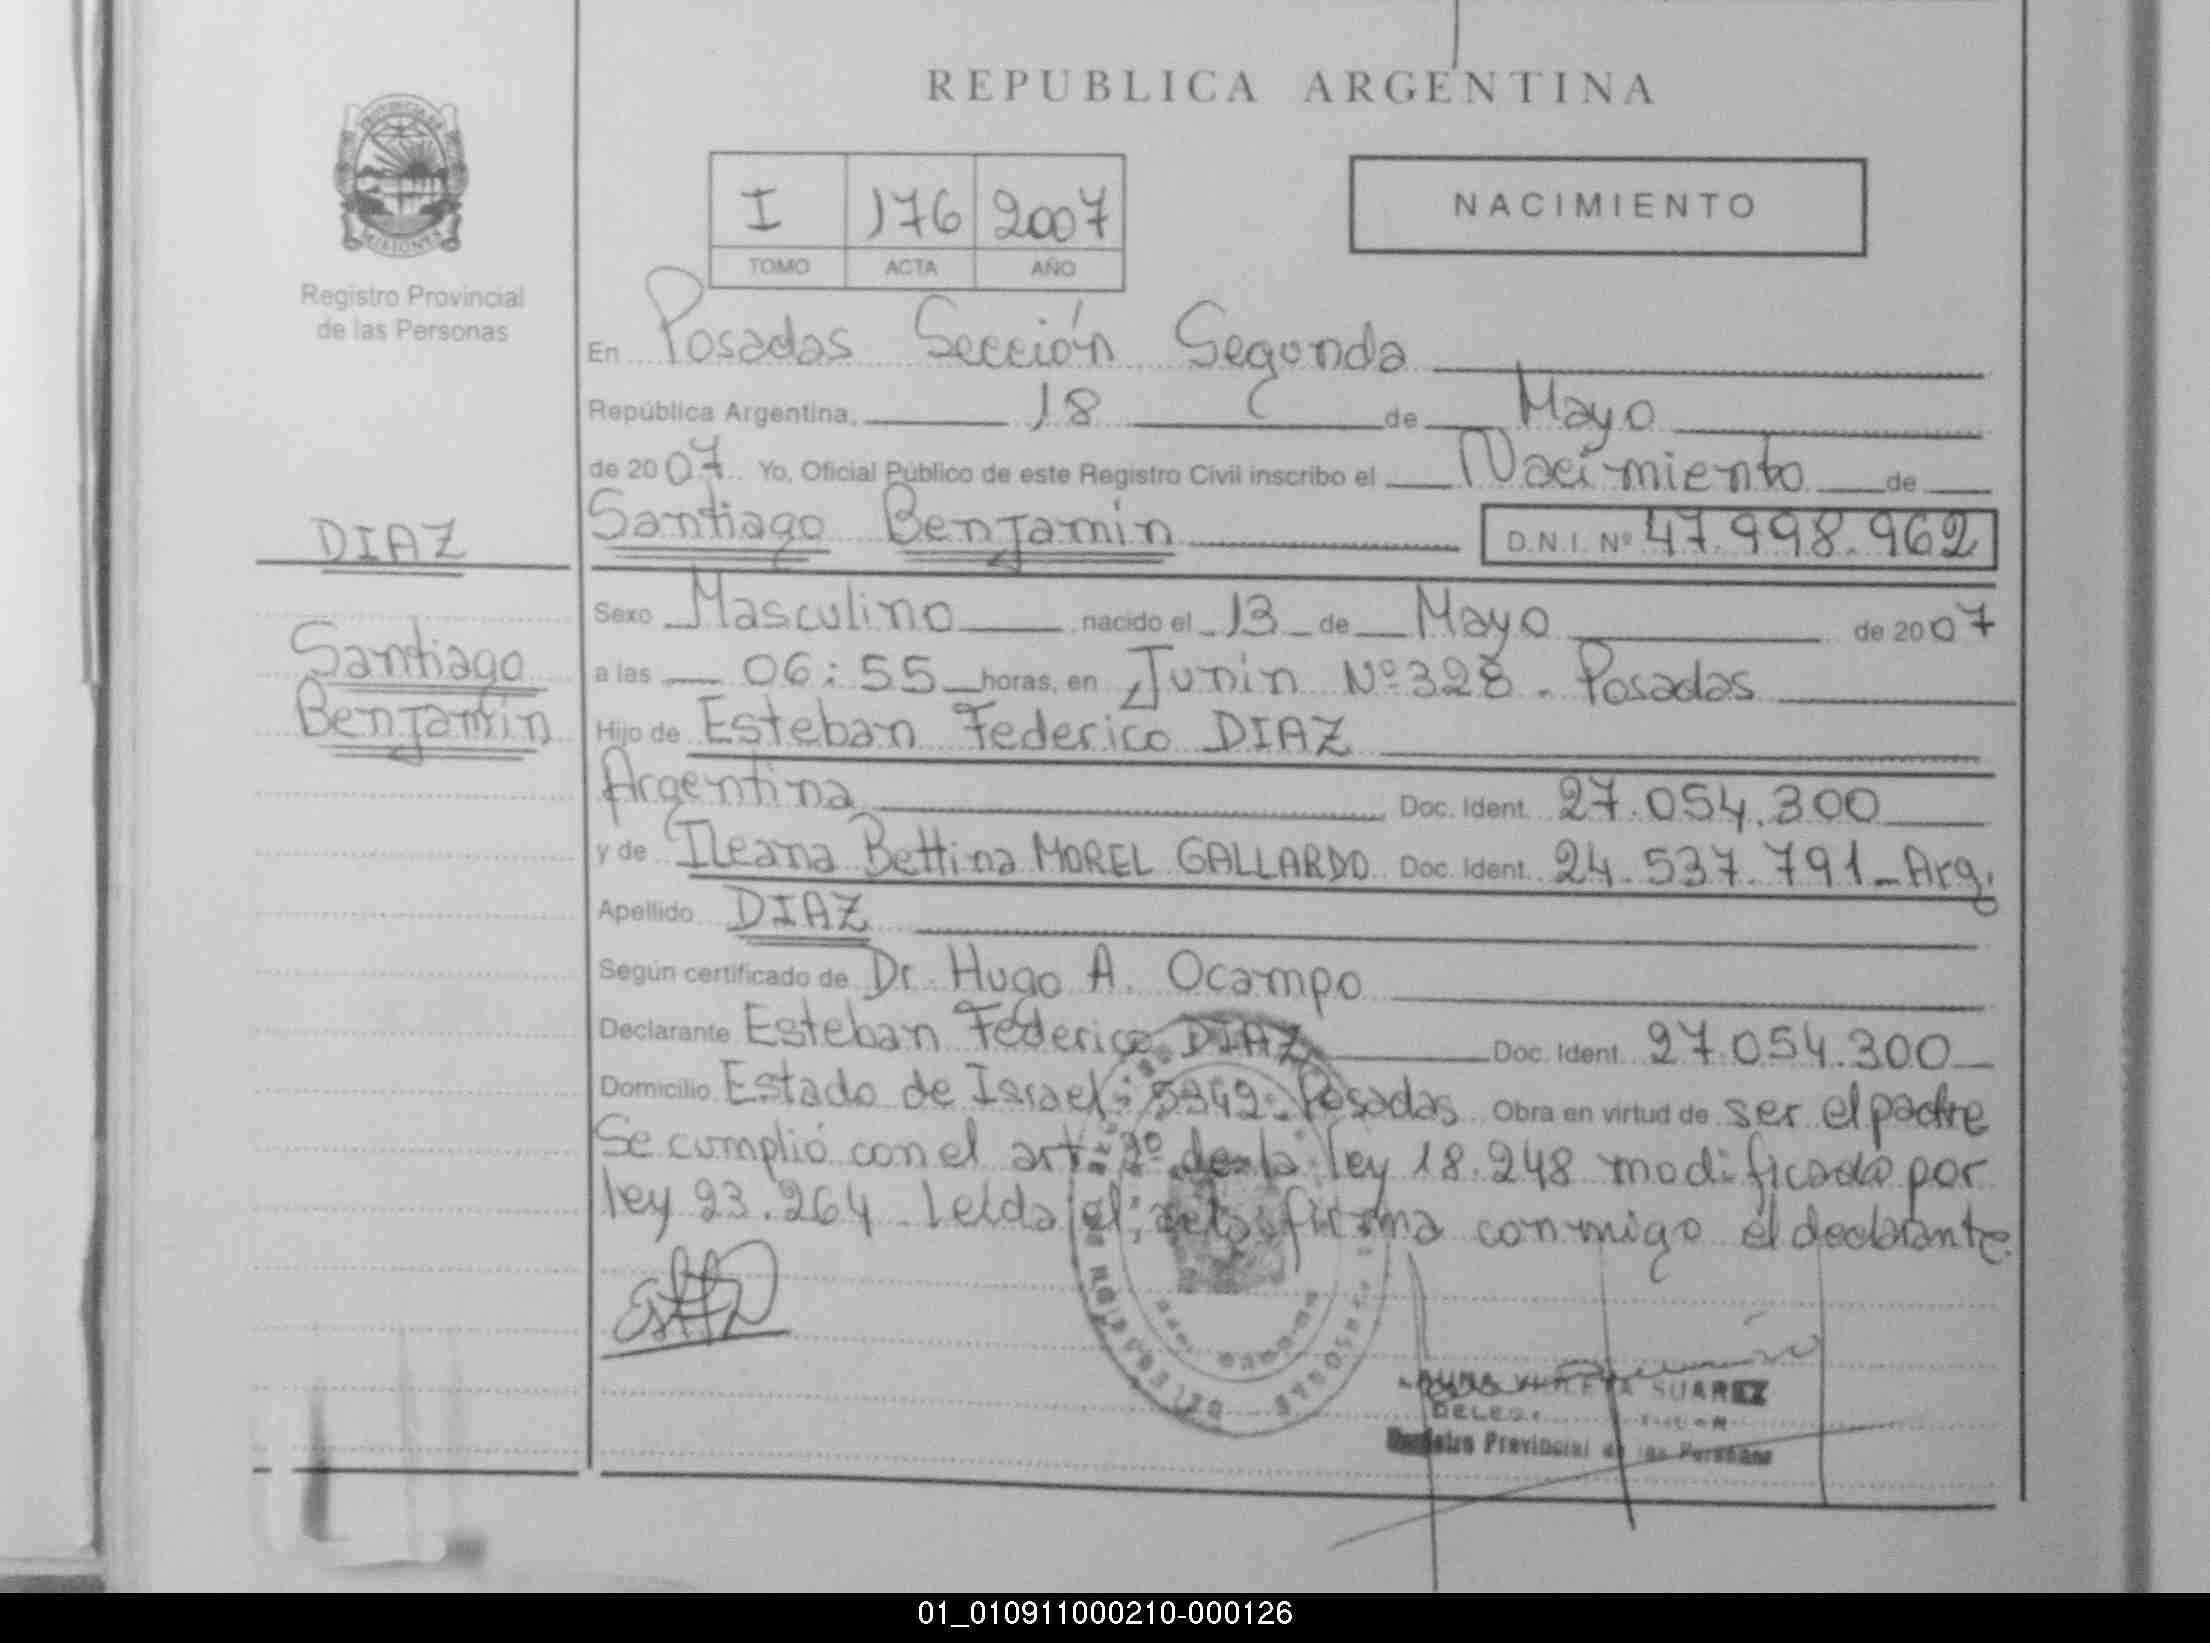 REPUBLICA ARGENTINA
PROVINCIA DE
MISIONES
Registro Provincial
de las Personas
I 176 2007
TOMO ACTA AÑO
NACIMIENTO
En Posadas Sección Segunda
República Argentina, 18 de Mayo
de 2007 Yo, Oficial Público de este Registro Civil inscribo el Nacimiento de
DIAZ
Santiago Benjamin D.N.I. Nº 47.998.962
Sexo Masculino nacido el 13 de Mayo de 2007
Santiago
Benjamin
a las 06:55 horas, en Junin Nº 328 - Posadas
Hijo de Esteban Federico DIAZ
Argentina Doc. Ident. 27.054.300
y de Ileana Bettina MOREL GALLARDO Doc. Ident. 24.537.791 - Arg.
Apellido DIAZ
Según certificado de Dr. Hugo A. Ocampo
Declarante Esteban Federico DIAZ Doc. Ident. 27.054.300
Domicilio Estado de Israel - 5349 - Posadas Obra en virtud de ser el padre
Se cumplió con el art. 2º de la ley 18.248 modificada por
ley 23.264 - Leída el acta firma conmigo el declarante.
SUAREZ
Registro Provincial de las Personas
01_010911000210-000126